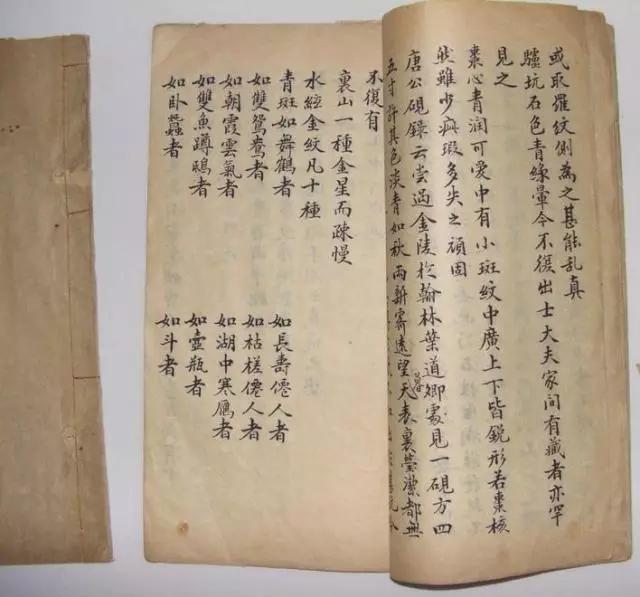 或取羅紋側為之甚能乱真
驢坑石色青綠暈今不復出士大夫家间有藏者亦罕
見之
棗心青润可愛中有小斑紋中廣上下皆銳形若棗核
然雖少病瑕多失之頑固
唐公硯錄云嘗過金陵於翰林葉道卿處見一硯方四
五寸許其色淡青如秋雨新霽遠望暮天表裏瑩潔都無
不復有
裏山一種金星而疎慢
水經金紋凡十種
青斑如舞鶴者 如長壽僊人者
如雙鴛鴦者 如枯槎僊人者
如朝霞雲氣者 如湖中寒鴈者
如雙魚蹲鴟者 如壺瓶者
如卧蠶者 如斗者